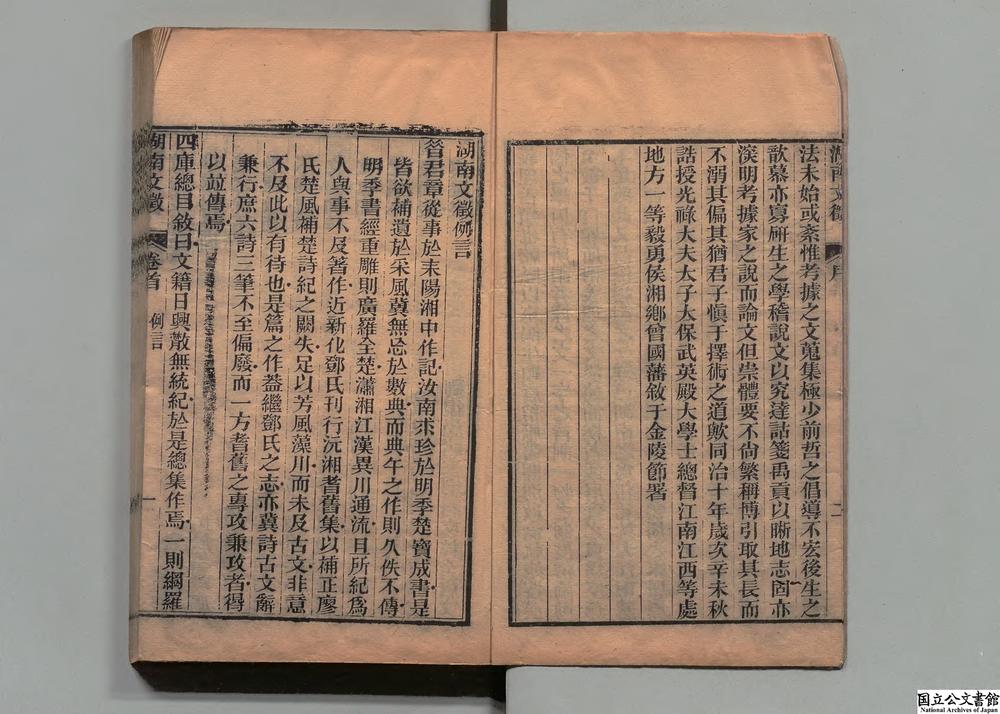 湖南文徵 序 二
法未始或紊惟考據之文蒐集極少前哲之倡導不宏後生之
歆慕亦寡研生之學稽說文以究達詁箋禹貢以晰地志固亦
深明考據家之說而論文但崇體要不尚繁稱博引取其長而
不溺其偏其猶君子愼于擇術之道歟同治十年歲次辛未秋
誥授光祿大夫太子太保武英殿大學士總督江南江西等處
地方一等毅勇侯湘鄉曾國藩敘于金陵節署
湖南文徵例言
晉君章從事於耒陽湘中作記汝南求珍於明季楚寶成書是
皆欲補遺於采風冀無忘於數典而典午之作則久佚不傳
明季書經重雕則廣羅全楚瀟湘江漢異川通流且所紀爲
人與事不及著作近新化鄧氏刊行沅湘耆舊集以補正廖
氏楚風補楚詩紀之闕失足以芳風藻川而未及古文非意
不及此以有待也是篇之作葢繼鄧氏之志亦冀詩古文辭
兼行庶六詩三筆不至偏廢而一方耆舊之專攻兼攻者得
以竝傳焉
四庫總目敘曰文籍日興散無統紀於是總集作焉一則網羅
湖南文徵 卷首 例言 一
国立公文書館
National Archives of Japan